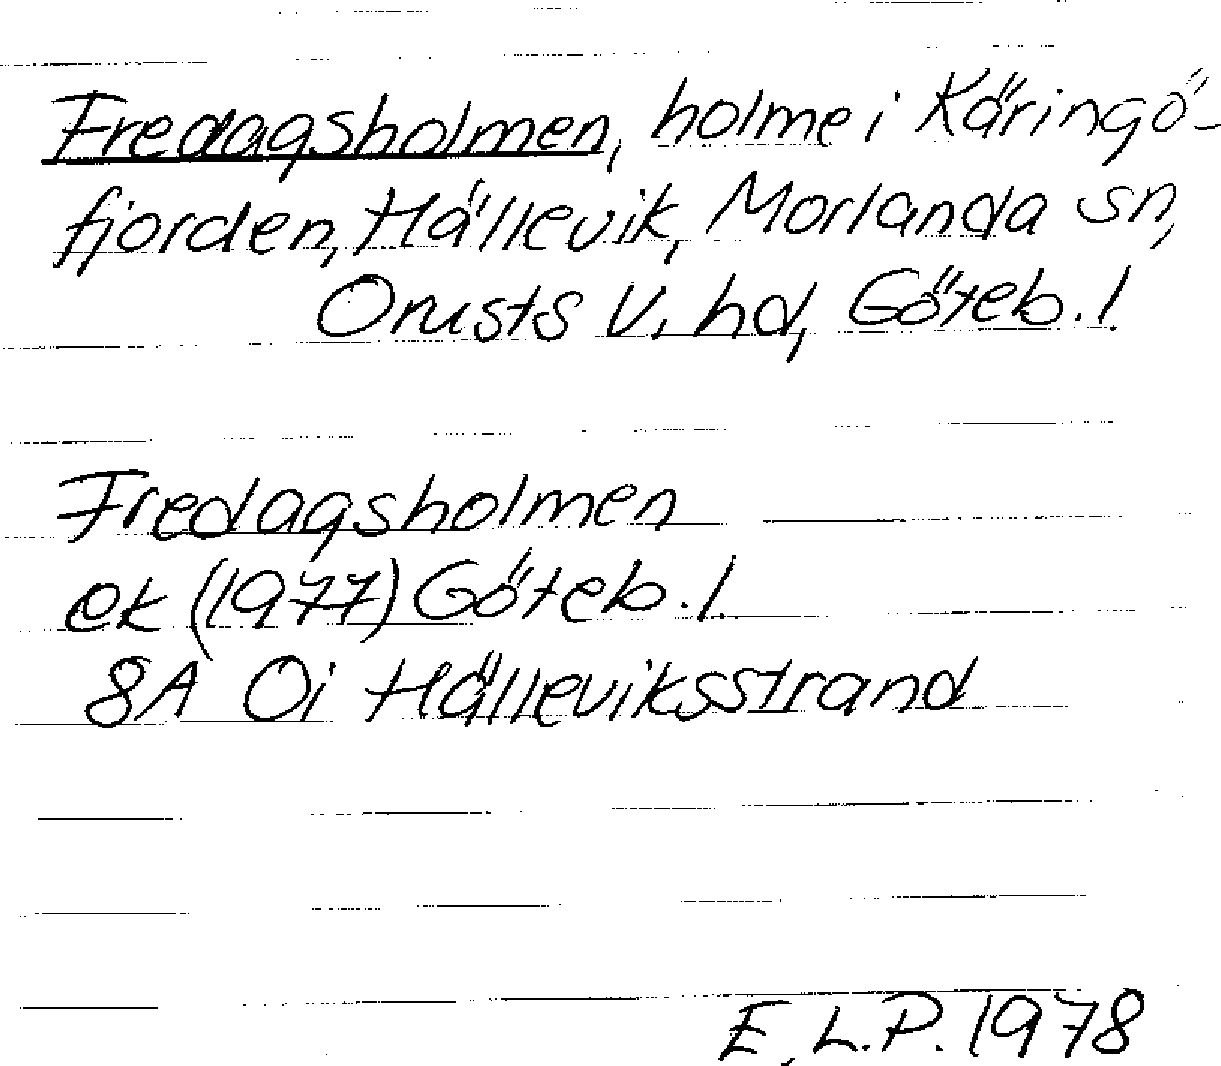 Fredagsholmen, holme i Käringö-
fjorden, Hällevik, Morlanda sn,
Orusts V. hd, Göteb. l.
Fredagsholmen
ek (1977) Göteb. l.
8A 0i Hälleviksstrand
E. L. P. 1978